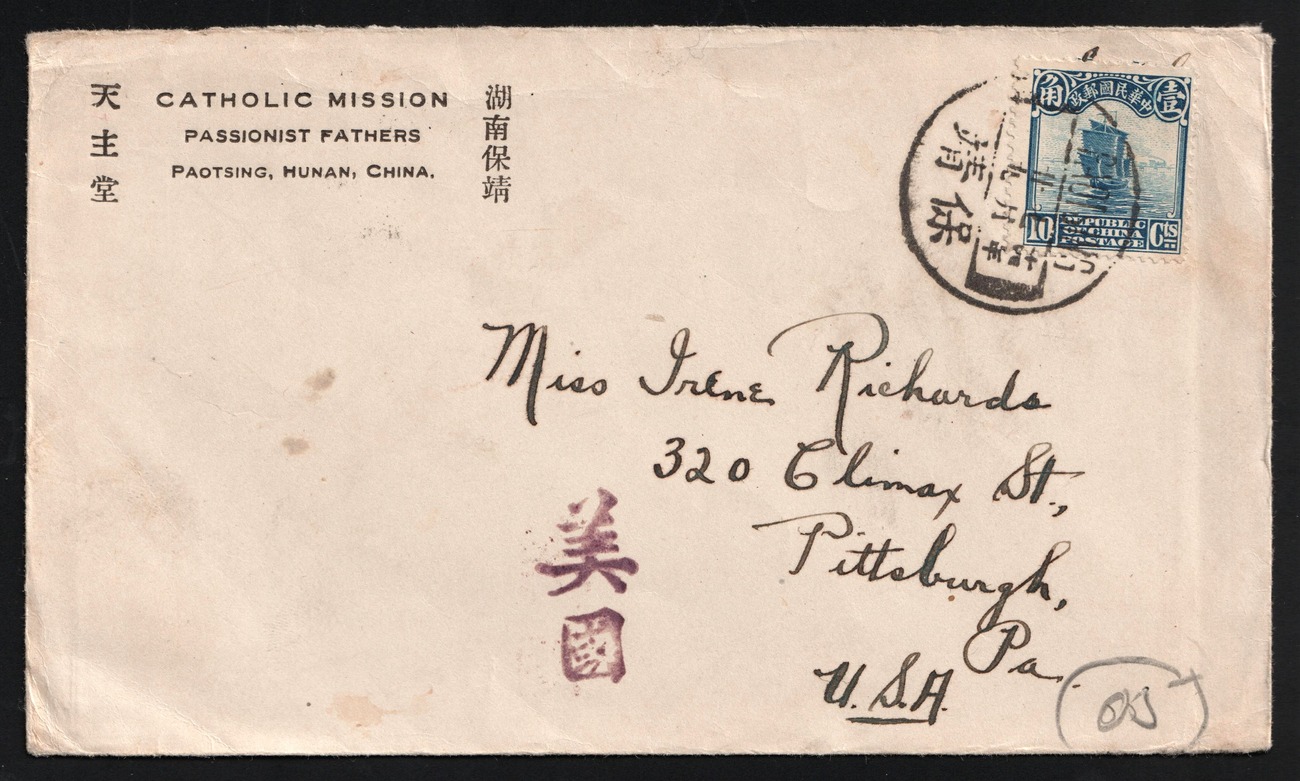 天主堂
CATHOLIC MISSION
PASSIONIST FATHERS
PAOTSING, HUNAN, CHINA.
湖南保靖
壹 中華民國郵政 角
10 REPUBLIC OF CHINA POSTAGE Cts
保靖
Miss Irene Richards
320 Climax St.,
Pittsburgh,
Pa.
U.S.A.
美國